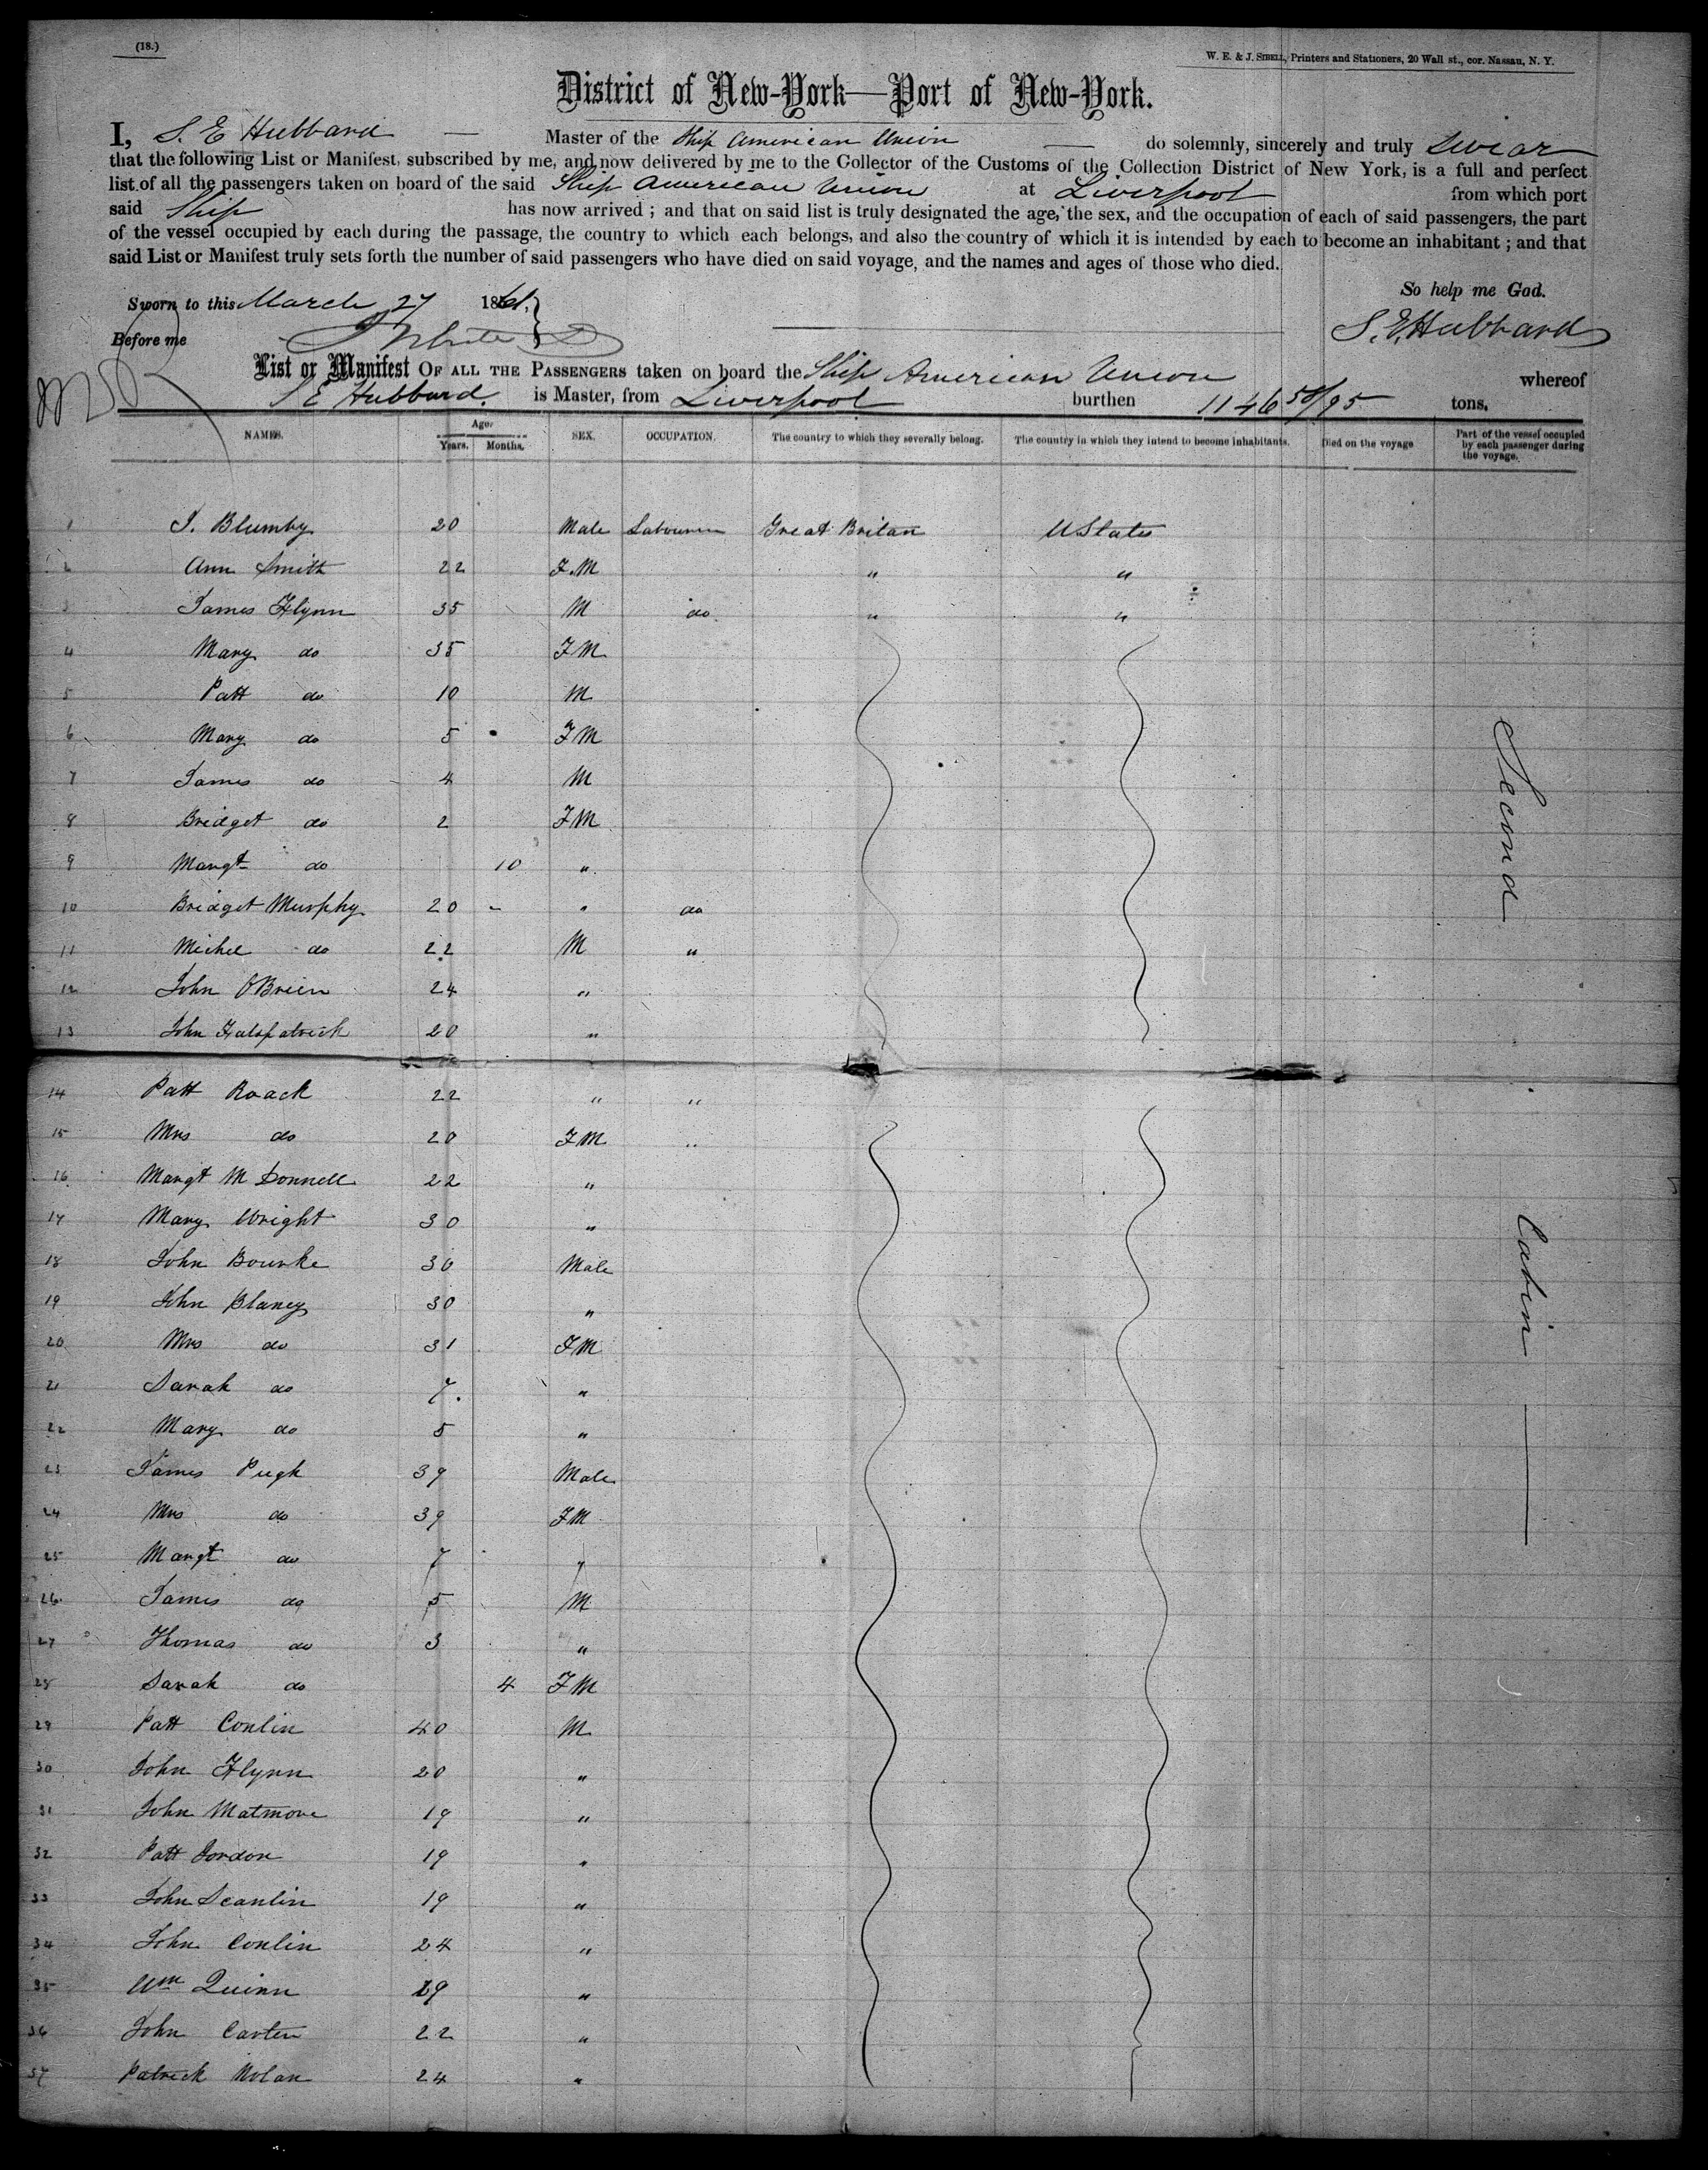 (18.)
W. E. & J. SIBELL, Printers and Stationers, 20 Wall st., cor. Nassau, N. Y.
District of New-York—Port of New-York.
I, S. E Hubbard — Master of the Ship American Union — do solemnly, sincerely and truly swear
that the following List or Manifest, subscribed by me, and now delivered by me to the Collector of the Customs of the Collection District of New York, is a full and perfect
list of all the passengers taken on board of the said Ship American Union at Liverpool from which port
said Ship has now arrived ; and that on said list is truly designated the age, the sex, and the occupation of each of said passengers, the part
of the vessel occupied by each during the passage, the country to which each belongs, and also the country of which it is intended by each to become an inhabitant ; and that
said List or Manifest truly sets forth the number of said passengers who have died on said voyage, and the names and ages of those who died.
So help me God.
Sworn to this March 27 1861.
S. E. Hubbard
Before me
List or Manifest OF ALL THE PASSENGERS taken on board the Ship American Union whereof
S E Hubbard. is Master, from Liverpool burthen 1146 58/95 tons.
NAMES. Age. Years. Months. SEX. OCCUPATION. The country to which they severally belong. The country in which they intend to become inhabitants. Died on the voyage Part of the vessel occupied by each passenger during the voyage.
1 J. Blumby 20 Male Labourer Great Britan U States
2 Ann Smith 22 F.M " "
3 James Flynn 35 M do " "
4 Mary do 35 FM
5 Patt do 10 M
6 Mary do 5 FM
7 James do 4 M
8 Bridget do 2 FM
9 Margt do 10 "
10 Bridget Murphy 20 - " do
11 Michel do 22 M "
12 John OBrien 24 "
13 John Fatspatrick 20 "
14 Patt Roack 22 " "
15 Mrs do 20 FM "
16 Margt M Donnell 22 "
17 Mary Wright 30 "
18 John Bourke 30 Male
19 John Blaney 30 "
20 Mrs do 31 FM
21 Sarah do 7. "
22 Mary do 5 "
23 James Pugh 39 Male
24 Mrs do 39 FM
25 Margt do 7 "
26 James do 5 M
27 Thomas do 3 "
28 Sarah do 4 FM
29 Patt Conlin 40 M
30 John Flynn 20 "
31 John Matmore 19 "
32 Patt Jordon 19 "
33 John Scanlin 19 "
34 John Conlin 24 "
35 Wm Quinn 29 "
36 John Carten 22 "
37 Patrick Nolan 24 "
Second
Cabin —